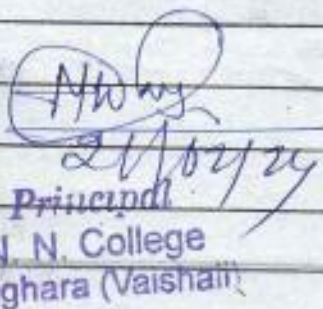 21/02/24
Principal
N. N. College
ghara (Vaishali)